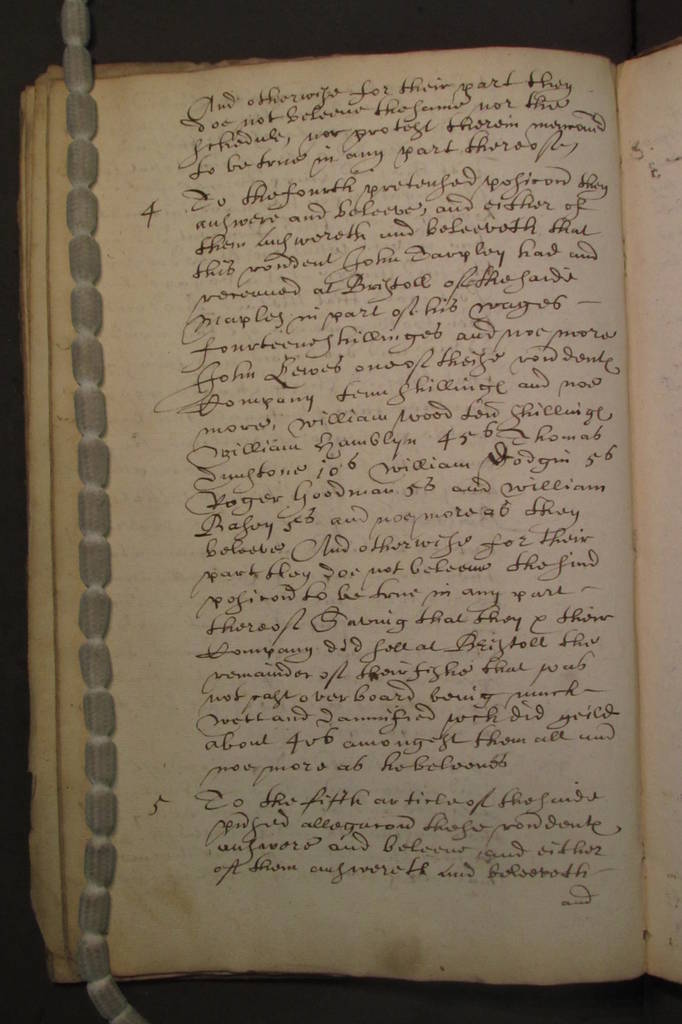 And otherwise for their part they
doe not beleeve the same nor the
schedule, nor protest therein menconed
to be true in any part thereof,
4 To the fourth pretensed posicon they
answere and beleeve, and either of
them answereth and beleeveth that
this rendent John Tarpley had and
received at Bristoll of the saide
Maples in part of his wages
fourteene shillinges and noe more
John Lewes one of theise rondents
Company tenn shillings and noe
more, William Wood tenn shillings
William Hamblyn 45s Thomas
Dunstone 10s William Dodgin 5s
Roger Goodman 5s and William
5s and noe more as they
beleeve And otherwise for their
part they doe not beleeve the said
posicon to be true in any part
thereof Saving that they & their
Company did sell at Bristoll the
remainder of their fishe that was
not cast overboard being much
wett and damnified wch did yeild
about 40s amongest them all and
noe more as he beleeves
5 To the fifth article of the saide
ptnsed allegacon these rondents
answere and beleeve and either
of them answereth and beleeveth
and